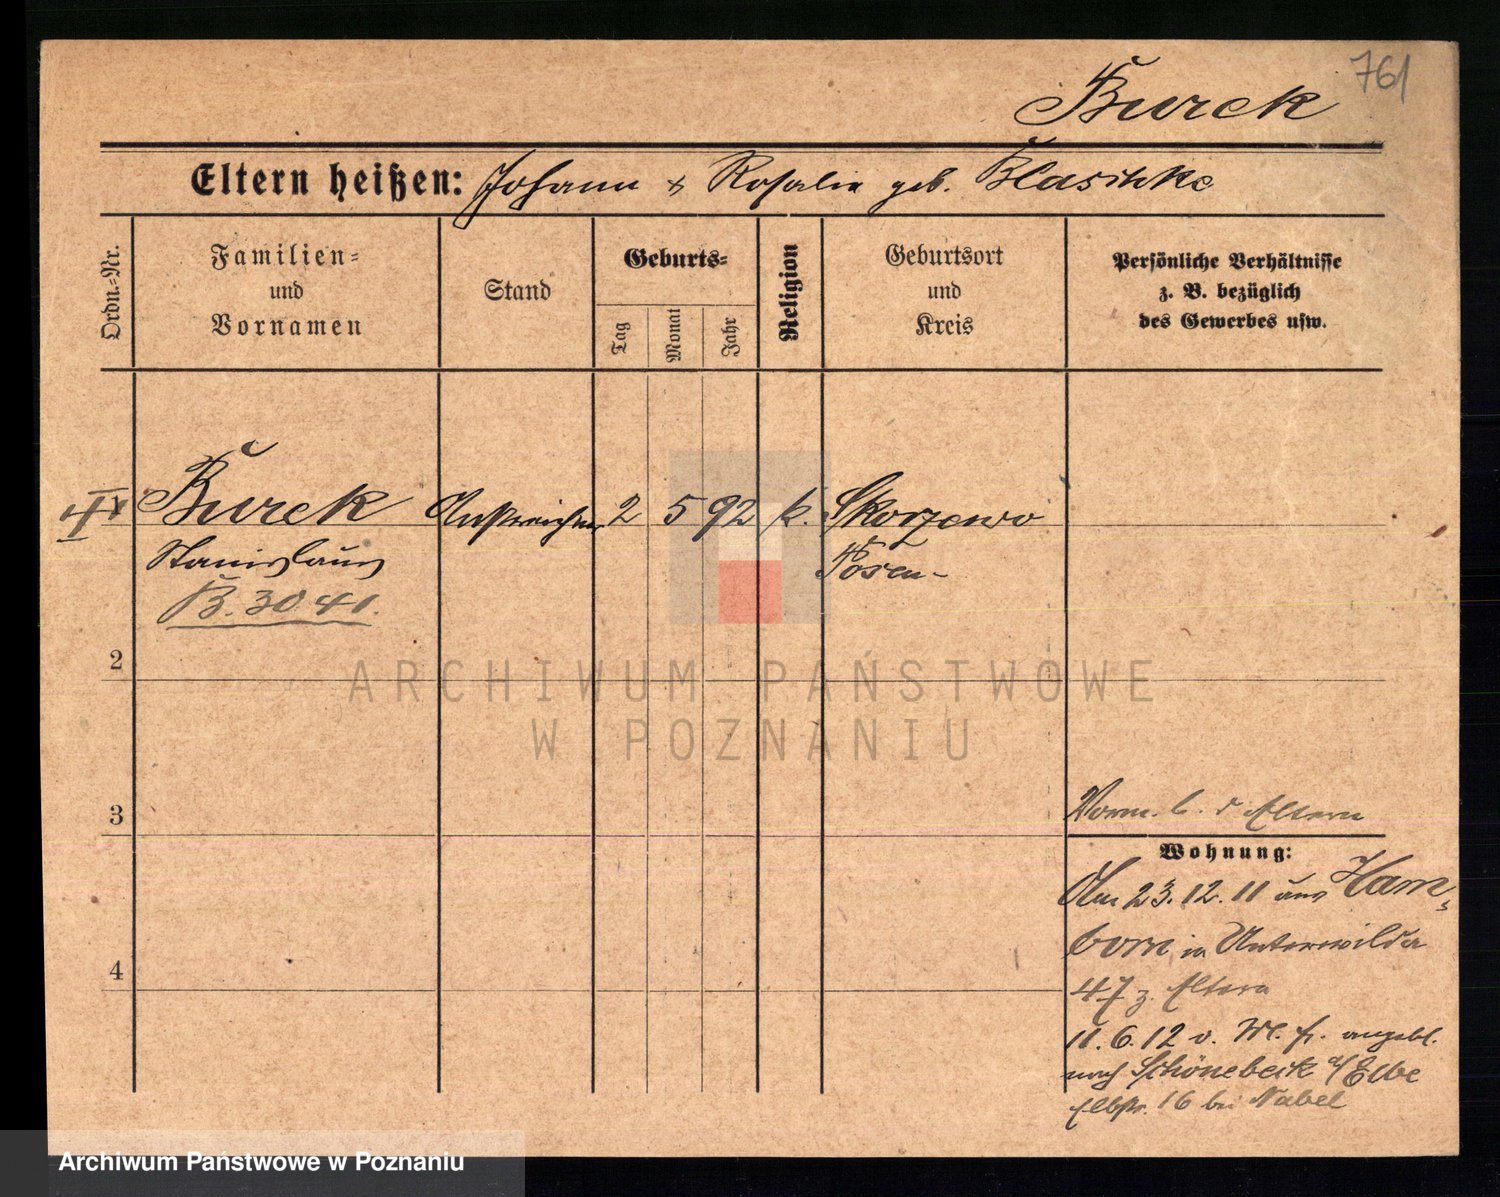 761
Burek
Eltern heißen: Johann & Rosalie geb. Blaschke
Ordn.-Nr.
Familien-
und
Vornamen
Stand
Geburts-
Tag
Monat
Jahr
Religion
Geburtsort
und
Kreis
Persönliche Verhältnisse
z. B. bezüglich
des Gewerbes usw.
Burek Anstreicher 2 5 92 k. Skorzewo
Stanislaus Posen-
B. 3041.
2
3
4
Vorm. b. d Eltern
Wohnung:
Am 23.12.11 aus Ham-
born in Unterwilda
47 z. Eltern
11.6.12 v. angebl.
nach Schönebeck a/Elbe
Elbstr. 16 bei Nabel
ARCHIWUM PAŃSTWOWE
W POZNANIU
Archiwum Państwowe w Poznaniu